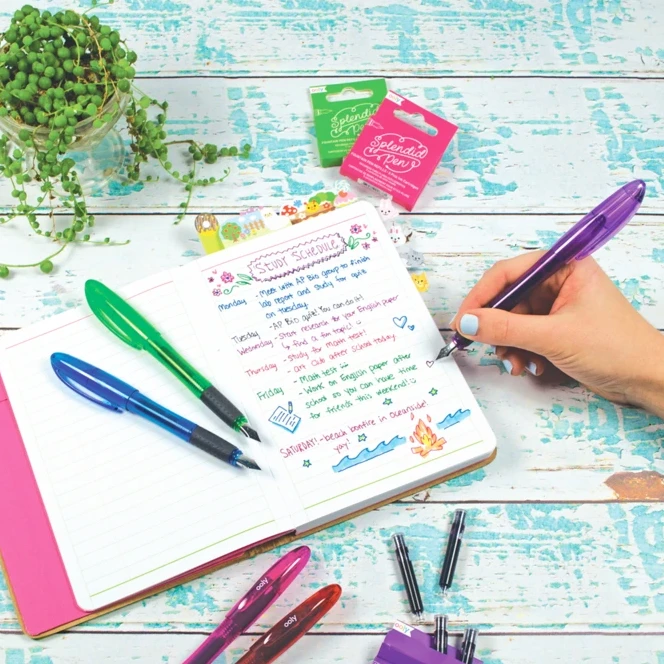 ooly
Splendid
Pen!
ooly
Splendid
Pen!
STUDY SCHEDULE
Monday - Meet with AP Bio group to finish
lab report and study for quiz
on tuesday
Tuesday - AP Bio quiz! You can do it!
Wednesday - Start research for your English paper
↳ find a fun topic!
Thursday - Study for math test!
- art club after school today
Friday - Math test
- Work on English paper after
school so you can have time
for friends this weekend!
SATURDAY! - beach bonfire in oceanside!
yay!
ooly
ooly
ooly